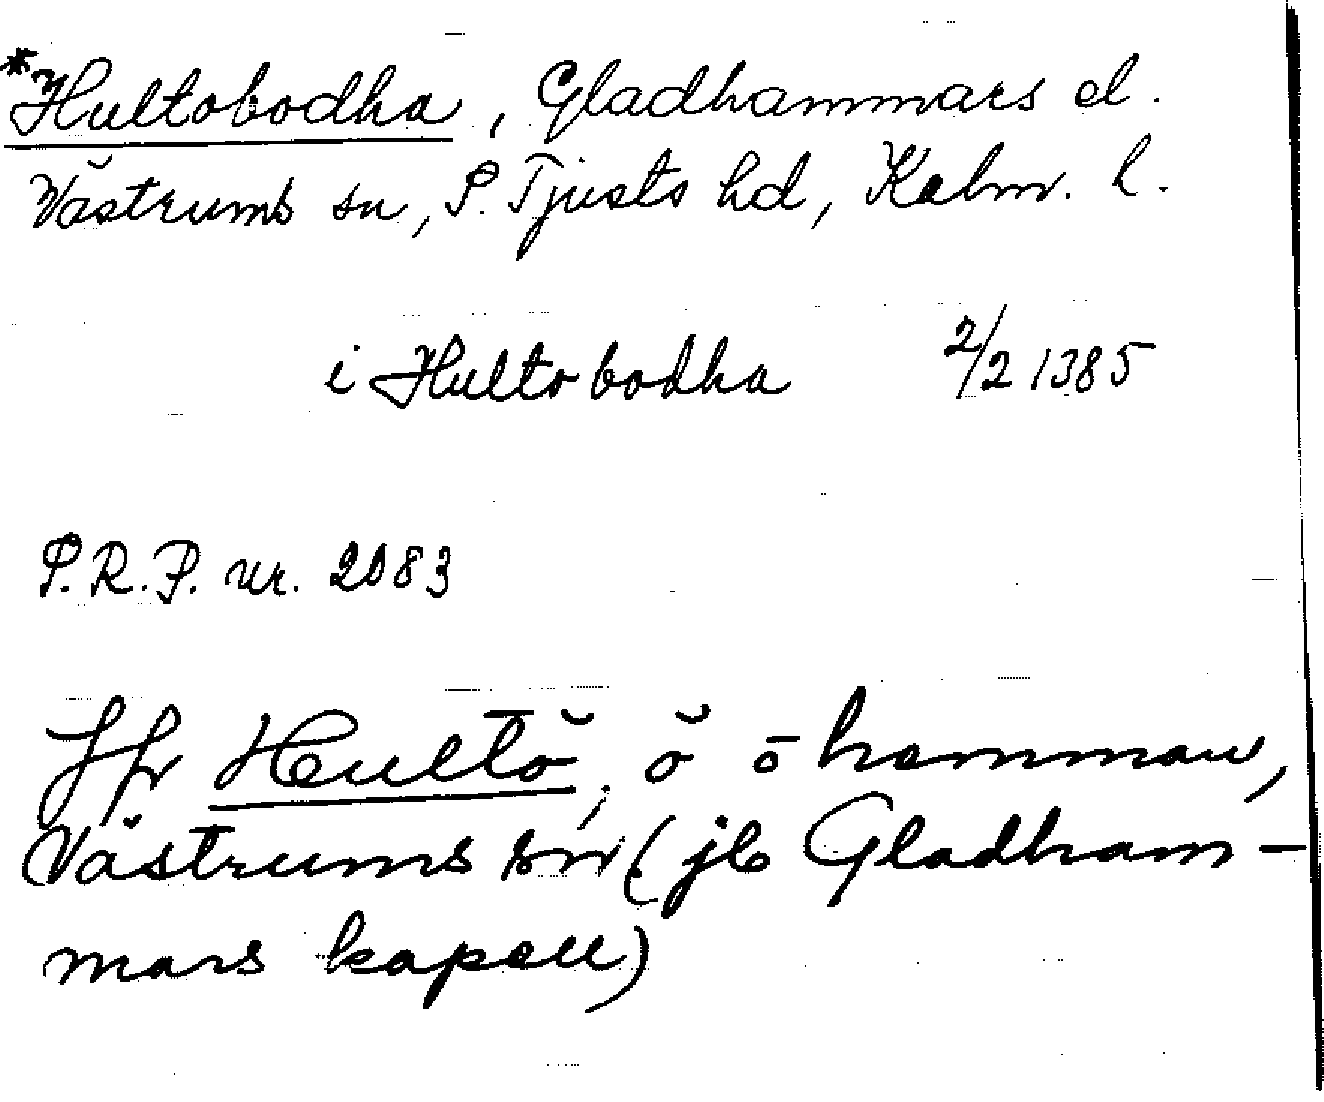 *Hultobodha, Gladhammars el.
Västrums sn, S. Tjusts hd, Kalm. l.
i Hultobodha 2/2 1385
S.R.P. nr. 2083
Jfr Hultö, ö ö hammaren,
Västrums sn (jb Gladham-
mars kapell)